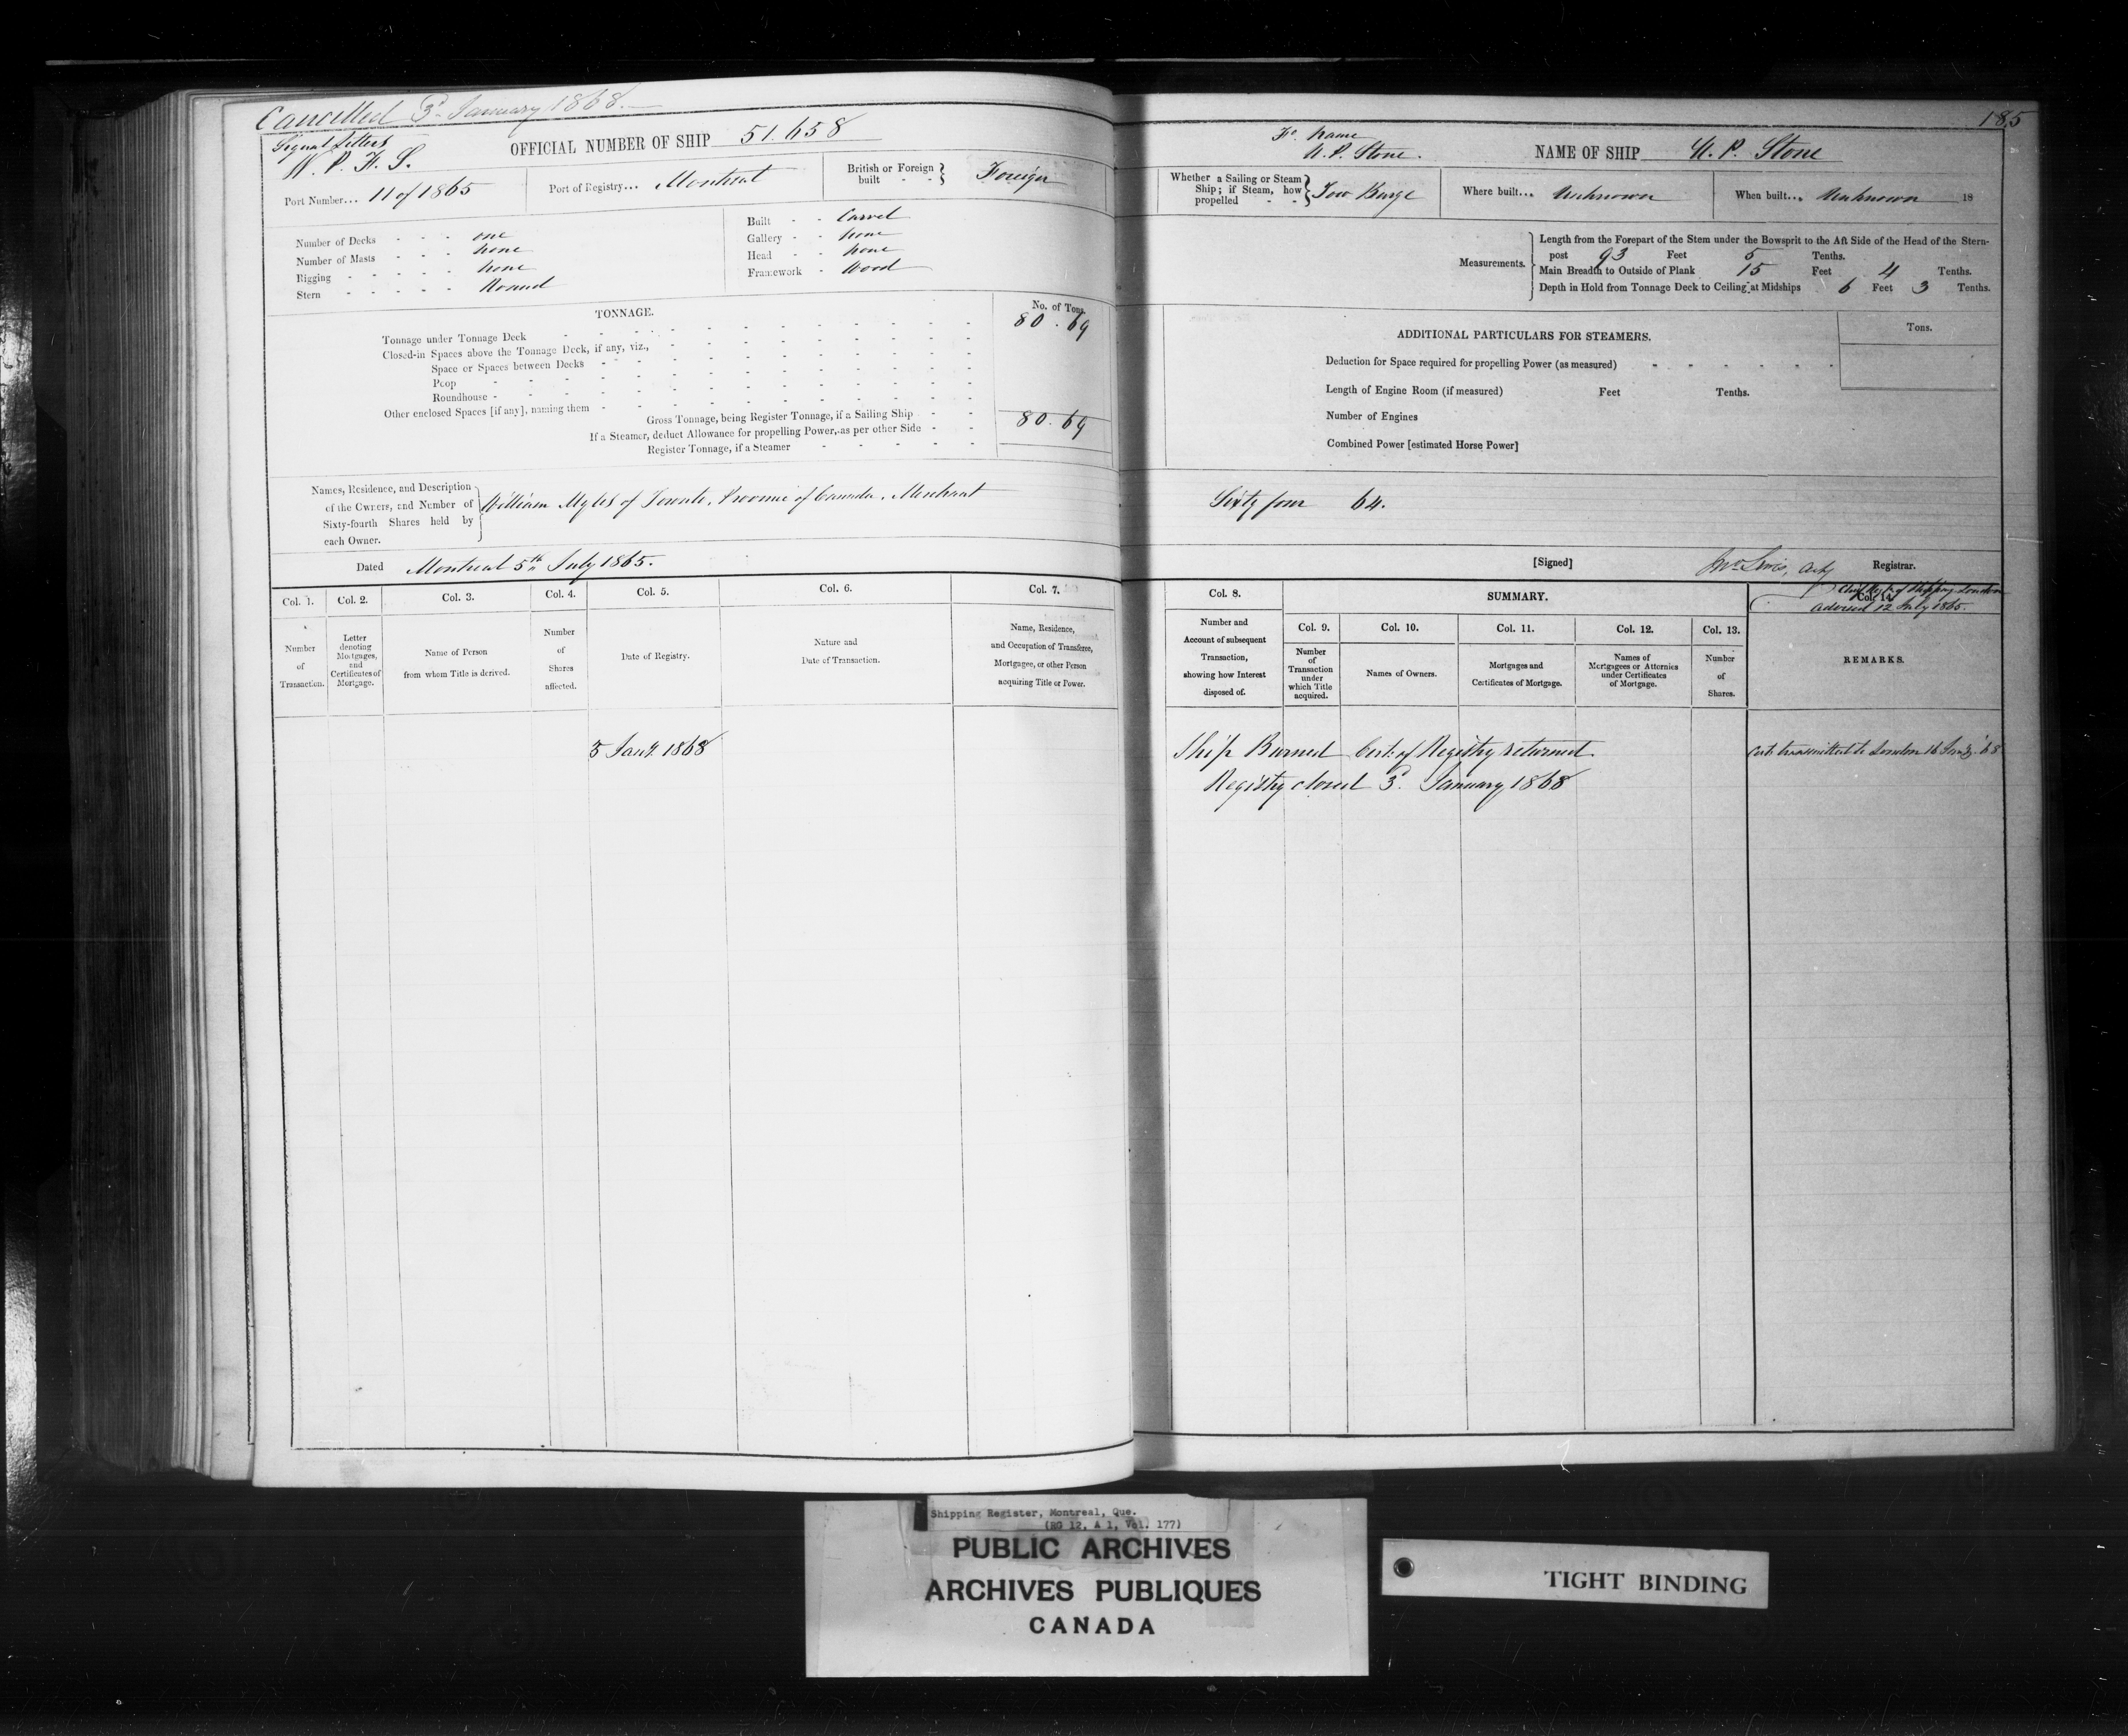 Cancelled 3d January 1868.
Signal Letters
W. P. F. S.
OFFICIAL NUMBER OF SHIP 51.658
Port Number... 11 of 1865
Port of Registry... Montreal
British or Foreign built - - Foreign
Number of Decks - - - one
Number of Masts - - - none
Rigging - - - - - none
Stern - - - - - Round
Built - - Carvel
Gallery - - none
Head - - none
Framework - Wood
TONNAGE.
No. of Tons.
Tonnage under Tonnage Deck 80.69
Closed-in Spaces above the Tonnage Deck, if any, viz.,
Space or Spaces between Decks
Poop
Roundhouse
Other enclosed Spaces [if any], naming them
Gross Tonnage, being Register Tonnage, if a Sailing Ship 80.69
If a Steamer, deduct Allowance for propelling Power, as per other Side
Register Tonnage, if a Steamer
Names, Residence, and Description
of the Owners, and Number of
Sixty-fourth Shares held by
each Owner.
William Myles of Toronto, Province of Canada, Merchant
Dated Montreal 5th July 1865.
Col. 1. Col. 2. Col. 3. Col. 4. Col. 5. Col. 6. Col. 7.
Number
of
Transaction.
Letter
denoting
Mortgages,
and
Certificates of
Mortgage.
Name of Person
from whom Title is derived.
Number
of
Shares
affected.
Date of Registry.
Nature and
Date of Transaction.
Name, Residence,
and Occupation of Transferee,
Mortgagee, or other Person
acquiring Title or Power.
3 Jany. 1868
185
name
U. P. Stone.
NAME OF SHIP U. P. Stone
Whether a Sailing or Steam
Ship; if Steam, how
propelled - -
Tow Barge
Where built... Unknown
When built... Unknown 18
Measurements.
Length from the Forepart of the Stem under the Bowsprit to the Aft Side of the Head of the Stern-
post 93 Feet 5 Tenths.
Main Breadth to Outside of Plank 15 Feet 4 Tenths.
Depth in Hold from Tonnage Deck to Ceiling at Midships 6 Feet 3 Tenths.
ADDITIONAL PARTICULARS FOR STEAMERS.
Tons.
Deduction for Space required for propelling Power (as measured)
Length of Engine Room (if measured) Feet Tenths.
Number of Engines
Combined Power [estimated Horse Power]
Sixty four 64.
[Signed] Registrar.
Col. 8.
SUMMARY.
Col. 14.
London
advised 12 July 1865.
Number and
Account of subsequent
Transaction,
showing how Interest
disposed of.
Col. 9. Col. 10. Col. 11. Col. 12. Col. 13.
Number
of
Transaction
under
which Title
acquired.
Names of Owners.
Mortgages and
Certificates of Mortgage.
Names of
Mortgagees or Attornies
under Certificates
of Mortgage.
Number
of
Shares.
REMARKS.
Ship Burned Cert: of Registry returned
Registry closed 3d. January 1868
Cert: transmitted to London 16 Jany. '68
Shipping Register, Montreal, Que.
(RG 12, A 1, Vol. 177)
PUBLIC ARCHIVES
ARCHIVES PUBLIQUES
CANADA
TIGHT BINDING